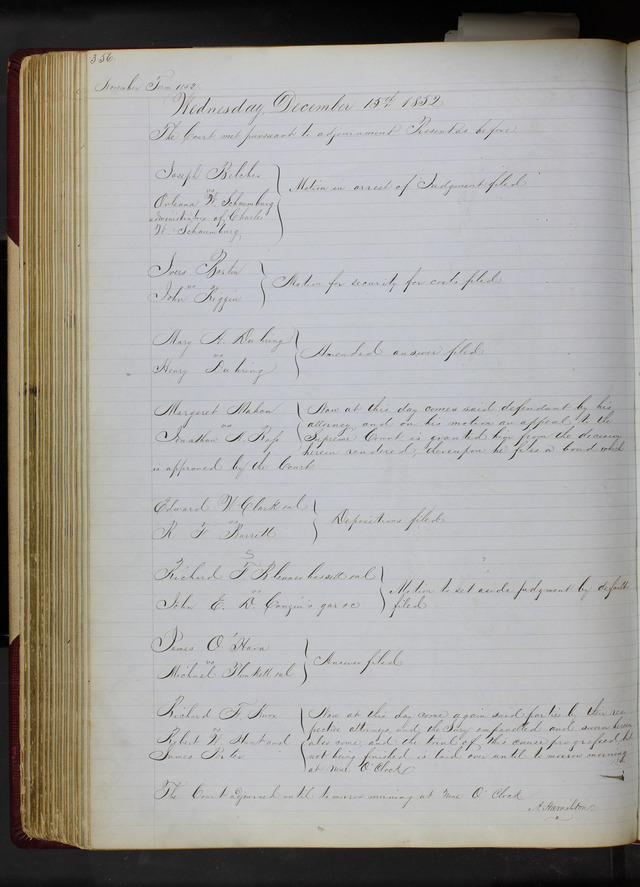 356
November Term 1852
Wednesday December 15th 1852
The Court met pursuant to adjournment Present as before
Joseph Belcher
vs
Orleana W. Schaumburg
administratrix of Charles
W. Schaumburg
Motion in arrest of Judgment filed
vs
John
Motion for security for costs filed
Mary A. Duhring
vs
Henry Duhring
Amended answer filed
Margaret Mahan
vs
Jonathan Ross
Now at this day comes said defendant by his
attorney, and on his motion an appeal to the
Supreme Court is granted him from the decision
herein rendered, thereupon he files a bond which
is approved by the Court
Edward W Clark et al
vs
R. F. Barrett
Depositions filed
Richard F. et al
vs
John E. D. gar &c
Motion to set aside judgment by default
filed
James O'Hara
vs
Michael Plunkett et al
Answer filed
Richard F.
vs
Robert W. Hunt and
James
Now at this day come again said parties by their res-
pective attorneys and the Jury empanelled and sworn herein
also come, and the trial of this cause progressed, but
not being finished is laid over until to morrow morning
at nine O'Clock
The Court adjourned until to morrow morning at nine O'Clock
A. Hamilton